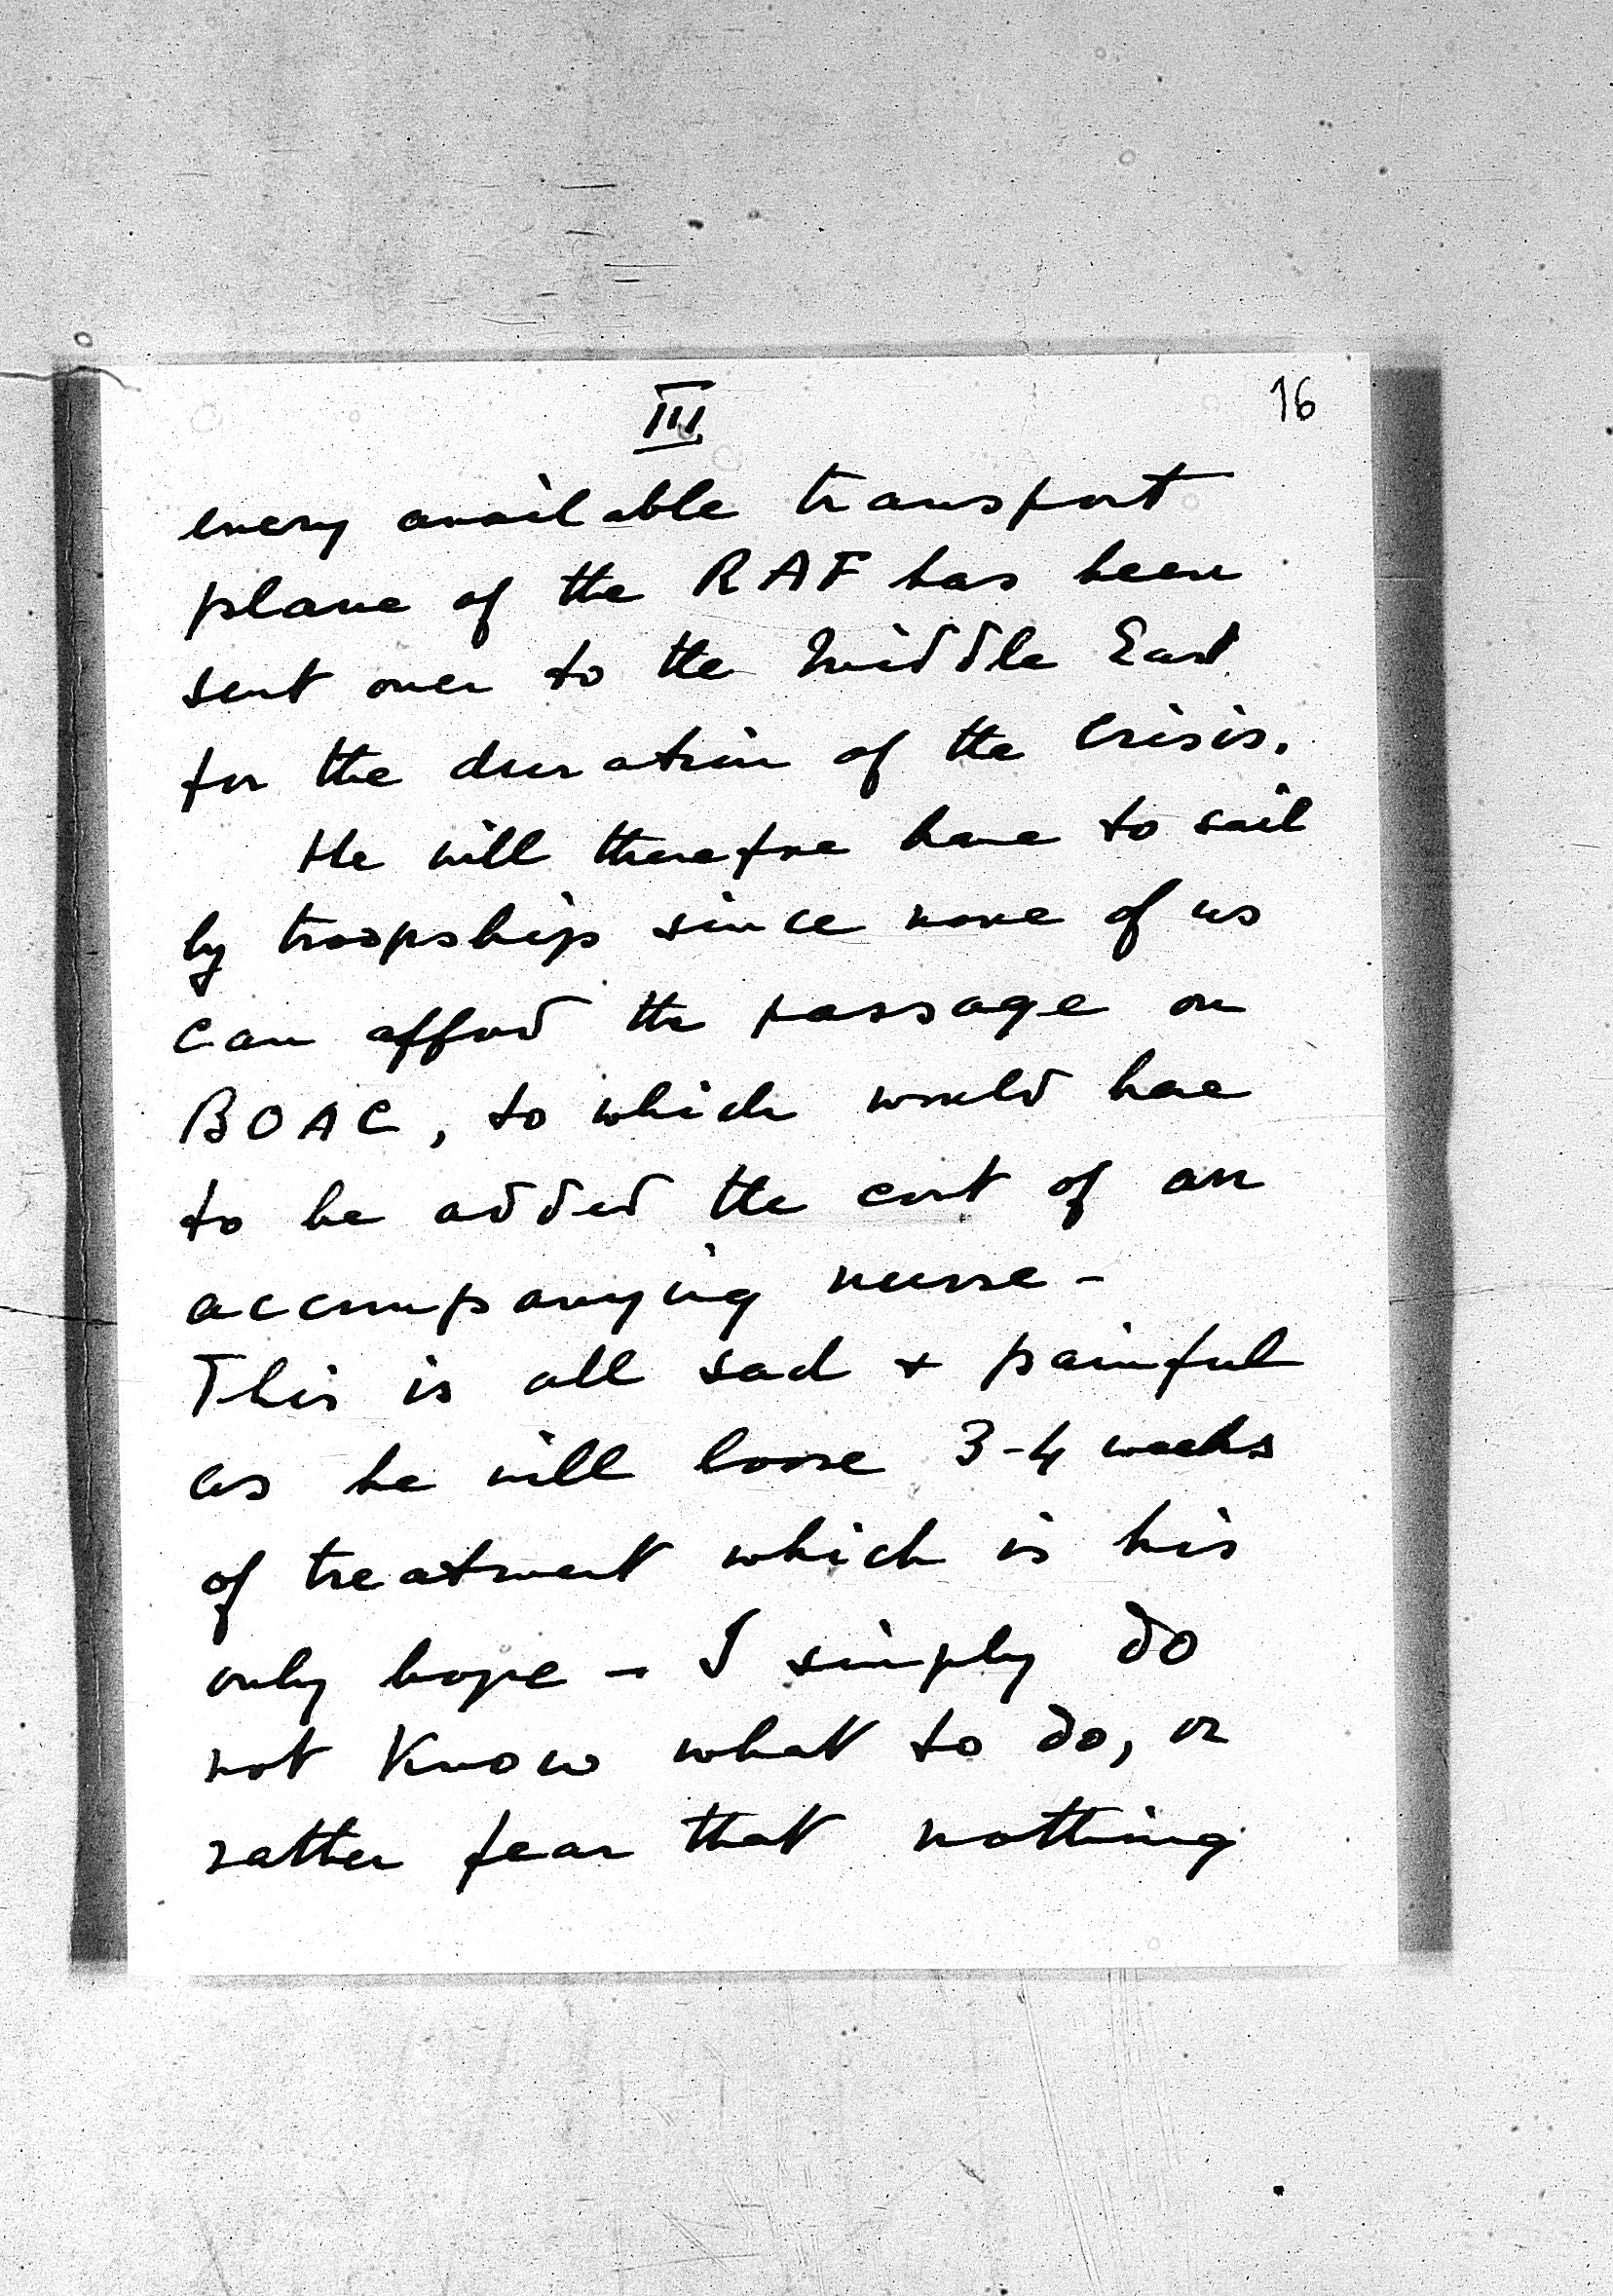 III
16
every available transport
plane of the RAF has been
sent over to the Middle East
for the duration of the Crisis.
He will therefore have to sail
by troopship since none of us
can afford the passage on
BOAC, to which would have
to be added the cost of an
accompanying nurse -
This is all sad + painful
as he will loose 3-4 weeks
of treatment which is his
only hope - I simply do
not know what to do, or
rather fear that nothing